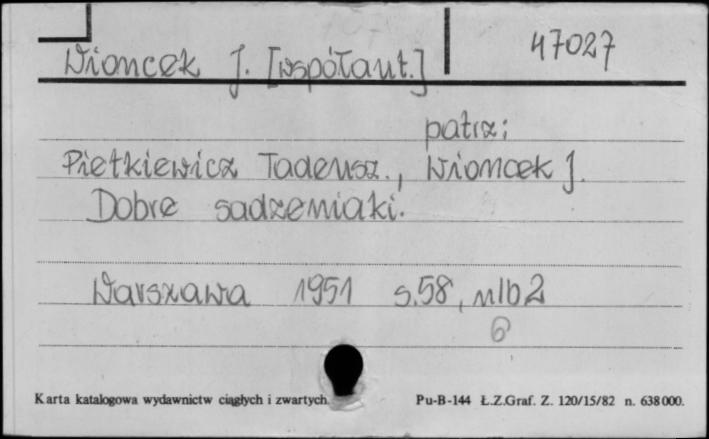 Wioncek J. [współaut.] 47027
patrz:
Pietkiewicz Tadeusz., Wioncek J.
Dobre sadzeniaki.
Warszawa 1951 s.58, nlb2
6
Karta katalogowa wydawnictw ciągłych i zwartych. Pu-B-144 Ł.Z.Graf. Z. 120/15/82 n. 638000.